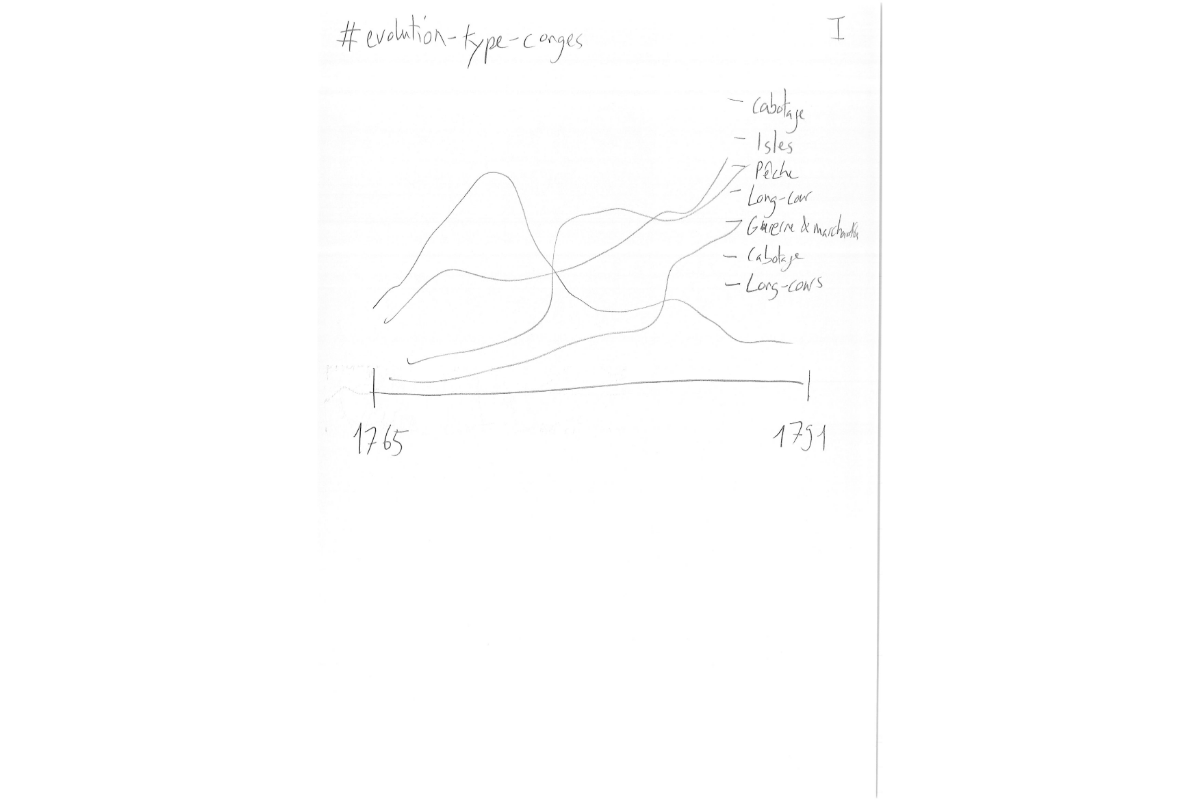 #evolution-type-conges
I
- Cabotage
- Isles
- Pêche
- Long-cour
- Guerre & marchandise
- Cabotage
- Long-cours
1765
1791